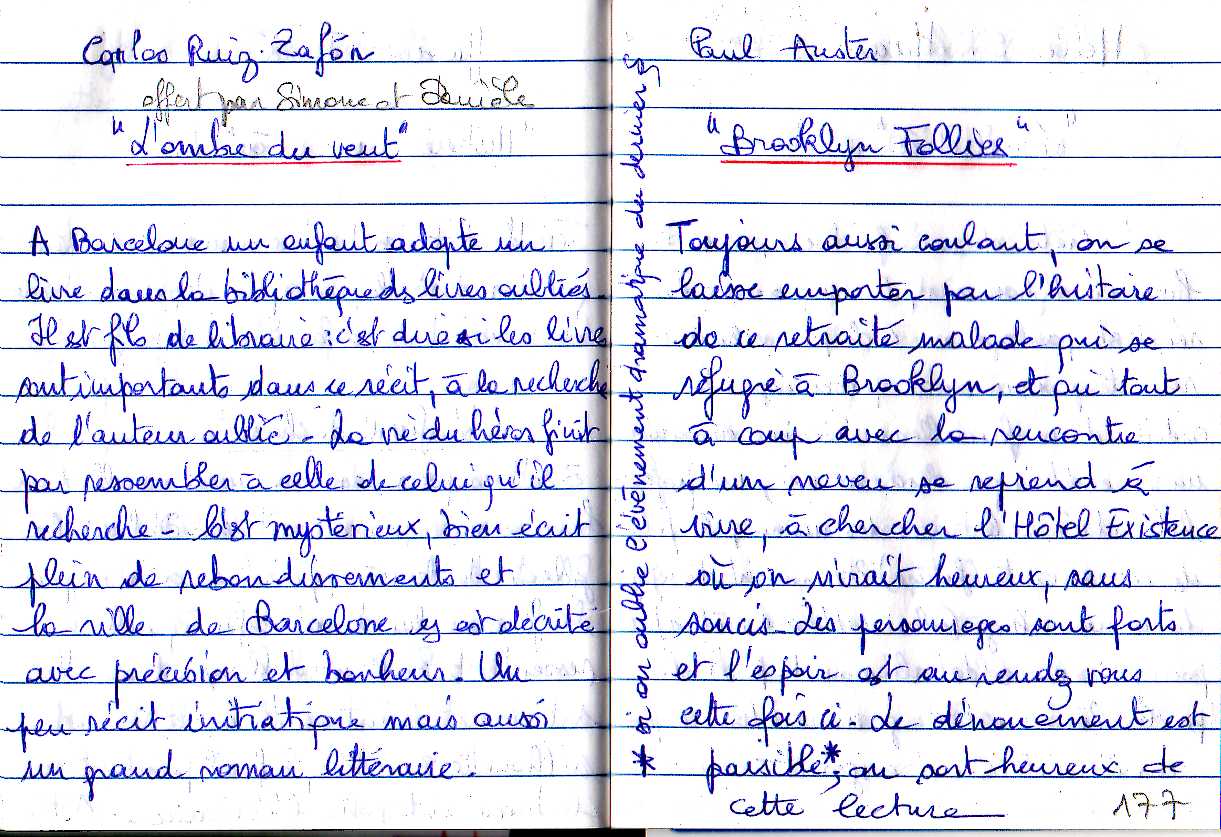 Carlos Ruiz Zafón
offert par Simone et Danièle
"L'ombre du vent"
A Barcelone un enfant adopte un
livre dans la bibliothèque ds livres oubliés.
Il est fils de libraire : c'est dire si les livres
sont importants dans ce récit, à la recherche
de l'auteur oublié - La vie du héros finit
par ressembler à celle de celui qu'il
recherche - C'est mystérieux, bien écrit
plein de rebondissements et
la ville de Barcelone y est décrite
avec précision et bonheur. Un
peu récit initiatique mais aussi
un grand roman littéraire.
* si on oublie l'évènement dramatique du dernier §
Paul Auster
"Brooklyn Follies"
Toujours aussi coulant, on se
laisse emporter par l'histoire
de ce retraité malade qui se
réfugie à Brooklyn, et qui tout
à coup avec la rencontre
d'un neveu se reprend à
vivre, à chercher l'Hôtel Existence
où on vivrait heureux, sans
soucis - Les personnages sont forts
et l'espoir est au rendez vous
cette fois ci - Le dénouement est
paisible*, on sort heureux de
cette lecture
177